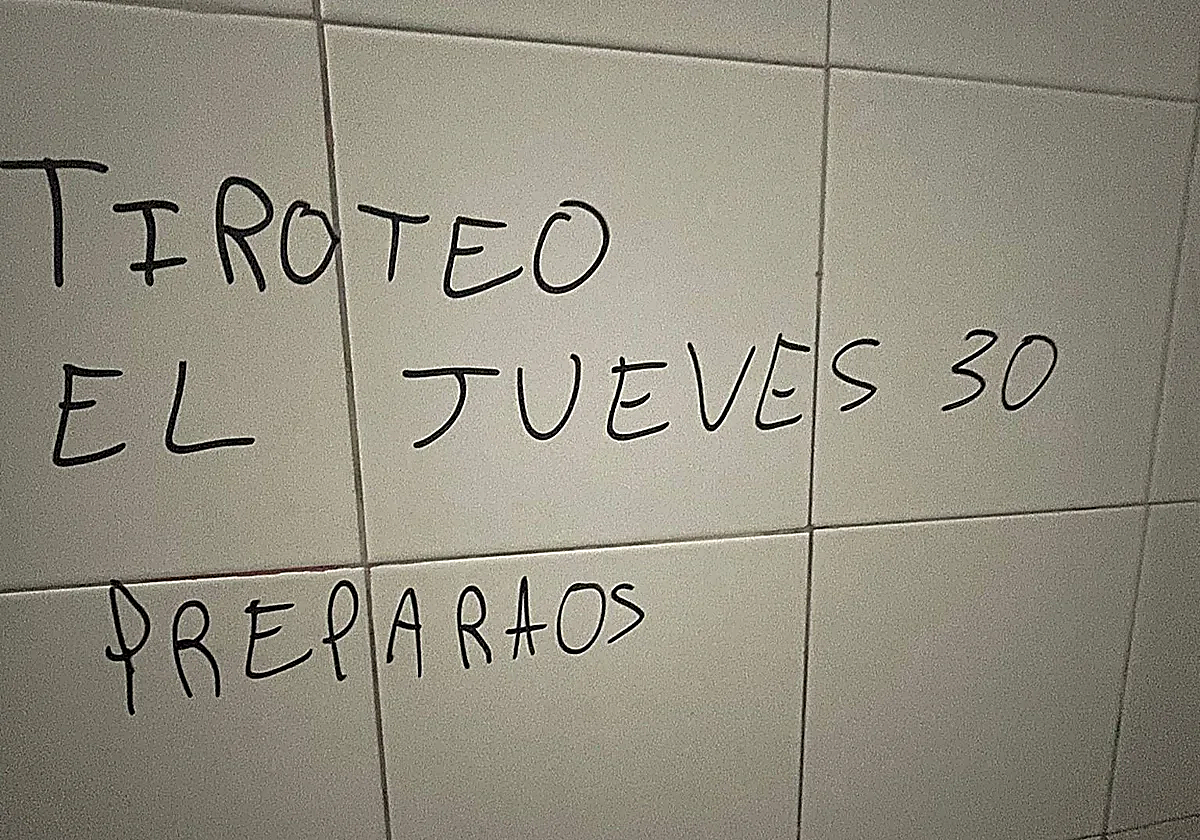 TIROTEO
EL JUEVES 30
PREPARAOS